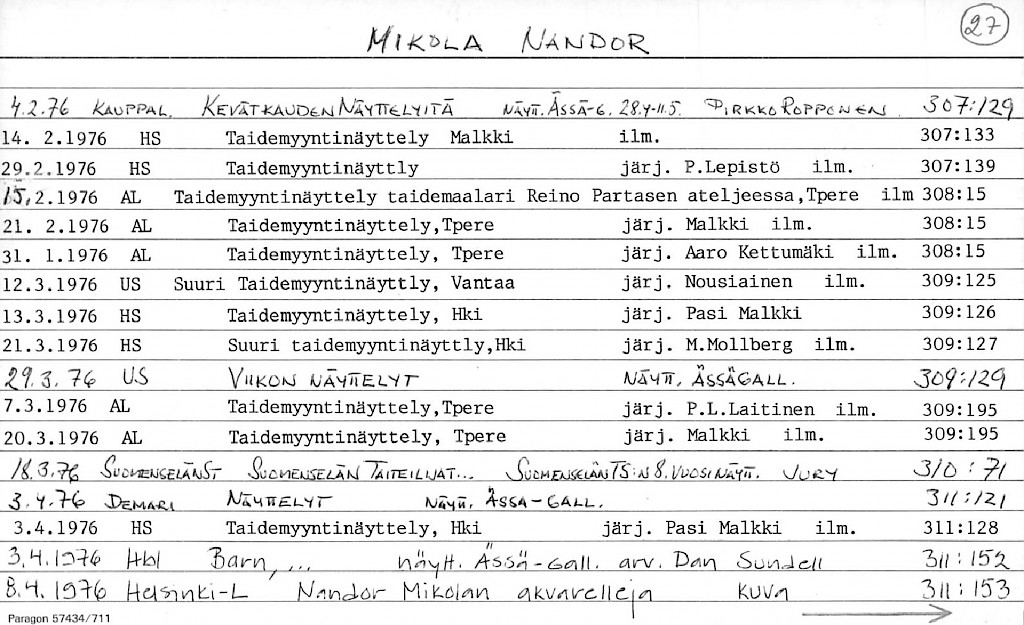 MIKOLA NANDOR 27
4.2.76 KAUPPAL. KEVÄTKAUDEN NÄYTTELYITÄ NÄYTT. ÄSSÄ-G. 28.4-11.5. PIRKKO POPPONEN 307:129
14. 2.1976 HS Taidemyyntinäyttely Malkki ilm. 307:133
29.2.1976 HS Taidemyyntinäyttly järj. P.Lepistö ilm. 307:139
15.2.1976 AL Taidemyyntinäyttely taidemaalari Reino Partasen ateljeessa,Tpere ilm 308:15
21. 2.1976 AL Taidemyyntinäyttely,Tpere järj. Malkki ilm. 308:15
31. 1.1976 AL Taidemyyntinäyttely, Tpere järj. Aaro Kettumäki ilm. 308:15
12.3.1976 US Suuri Taidemyyntinäyttly, Vantaa järj. Nousiainen ilm. 309:125
13.3.1976 HS Taidemyyntinäyttely, Hki järj. Pasi Malkki 309:126
21.3.1976 HS Suuri taidemyyntinäyttly,Hki järj. M.Mollberg ilm. 309:127
29.3.76 US VIIKON NÄYTTELYT NÄYTT. ÄSSÄGALL. 309:129
7.3.1976 AL Taidemyyntinäyttely,Tpere järj. P.L.Laitinen ilm. 309:195
20.3.1976 AL Taidemyyntinäyttely, Tpere järj. Malkki ilm. 309:195
18.3.76 SUOMENSELÄNST SUOMENSELÄN TAITEILIJAT... SUOMENSELÄN TS:N 8. VUOSINÄYTT. JURY 310:71
3.4.76 DEMARI NÄYTTELYT NÄYTT. ÄSSÄ-GALL. 311:121
3.4.1976 HS Taidemyyntinäyttely, Hki järj. Pasi Malkki ilm. 311:128
3.4.1976 Hbl Barn, ... näytt. Ässä-Gall. arv. Dan Sundell 311:152
8.4.1976 Helsinki-L Nandor Mikolan akvarelleja kuva 311:153
Paragon 57434/711